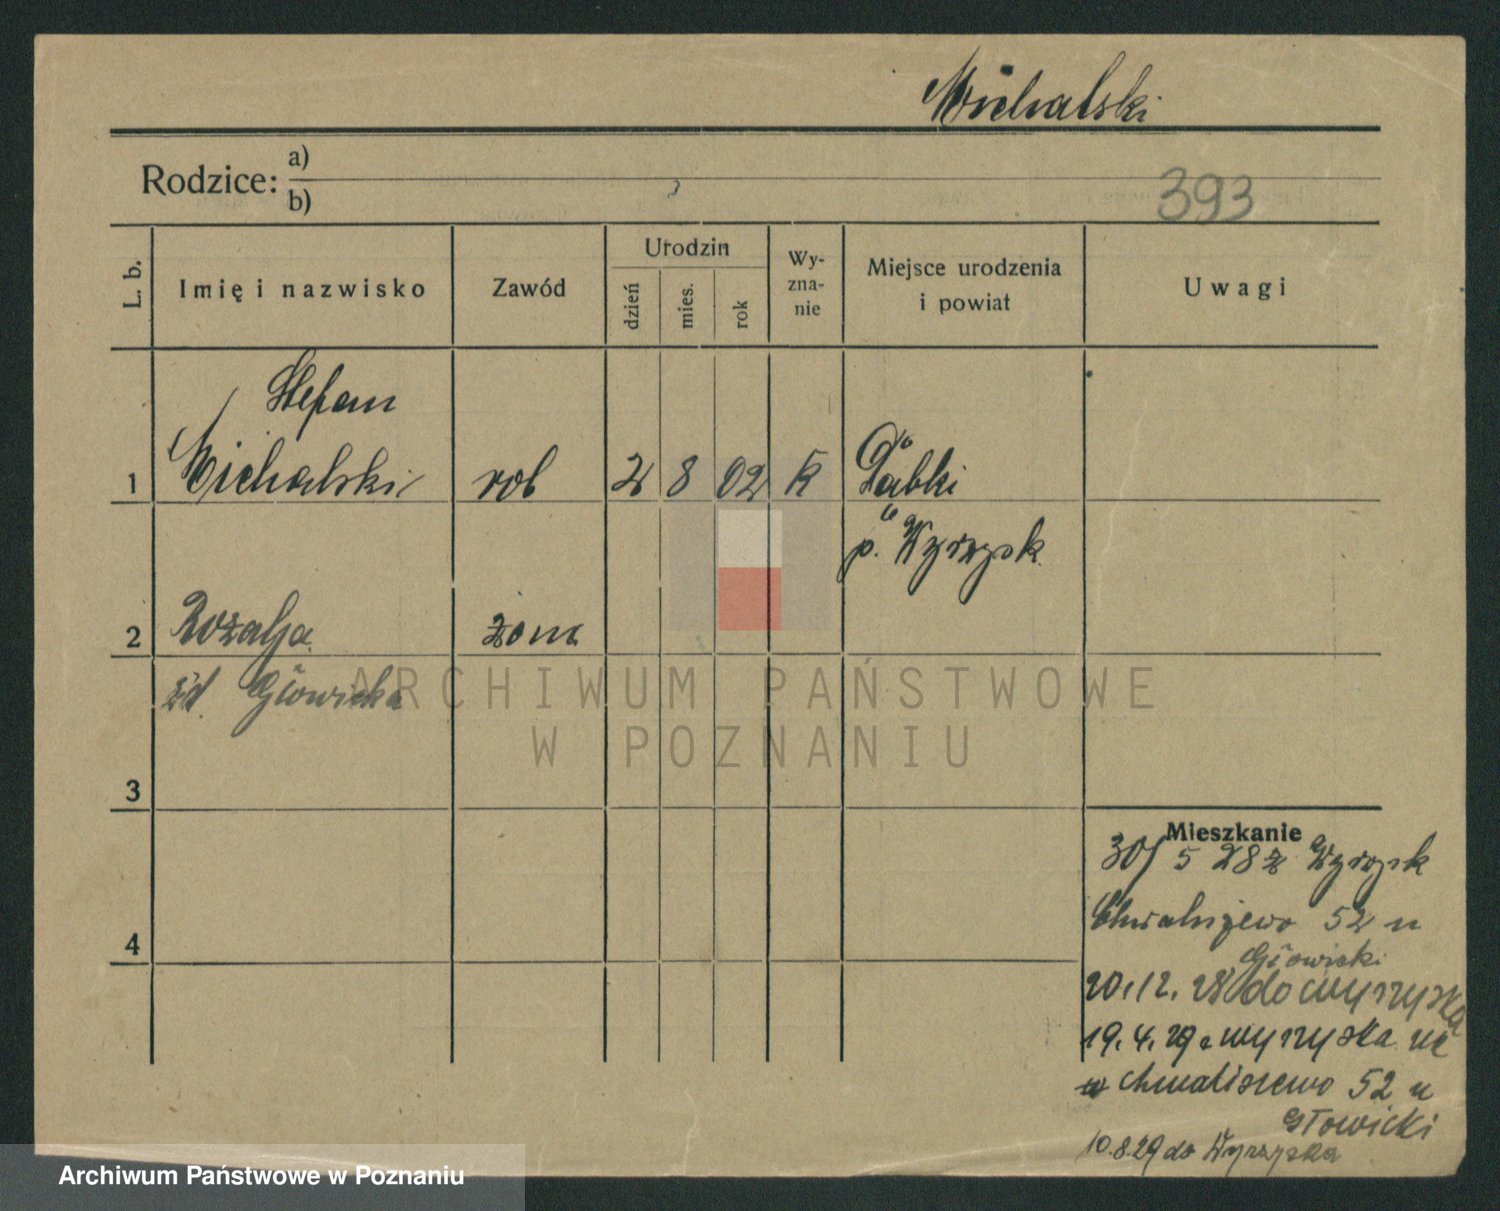 Michalski
Rodzice: a)
b)
393
L. b.
Imię i nazwisko
Zawód
Urodzin
dzień
mies.
rok
Wy-
zna-
nie
Miejsce urodzenia
i powiat
Uwagi
Stefan
1 Michalski rob 2 8 02 k Dąbki
p. Wyrzysk
2 Rozalja żona
Głowicka
3
4
Mieszkanie
30/5 28 z Wyrzysk
Chwaliszewo 52 u
Głowicki
20.12.28 do Wyrzyska
19.4.29 z Wyrzyska
Chwaliszewo 52 u
Głowicki
10.8.29 do Wyrzyska
ARCHIWUM PAŃSTWOWE
W POZNANIU
Archiwum Państwowe w Poznaniu